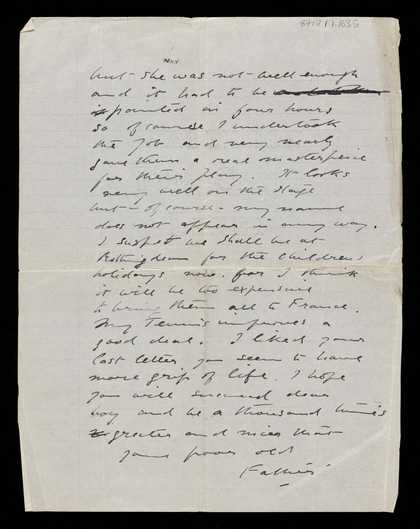 8717.1.1035
but she was not well enough
and it had to be
painted in four hours
so of course I undertook
the Job and very nearly
gave them a real masterpiece
for their play. It looks
very well on the stage
but - of course - my name
does not appear in any way.
I suspect we shall be at
Rottingdean for the Childrens
holidays now. for I think
it will be too expensive
to bring them all to France.
My Tennis improves a
good deal. I liked your
last letter you seem to have
more grip of life. I hope
you will succeed dear
boy and be a thousand times
greater and nicer than
your poor old
Father